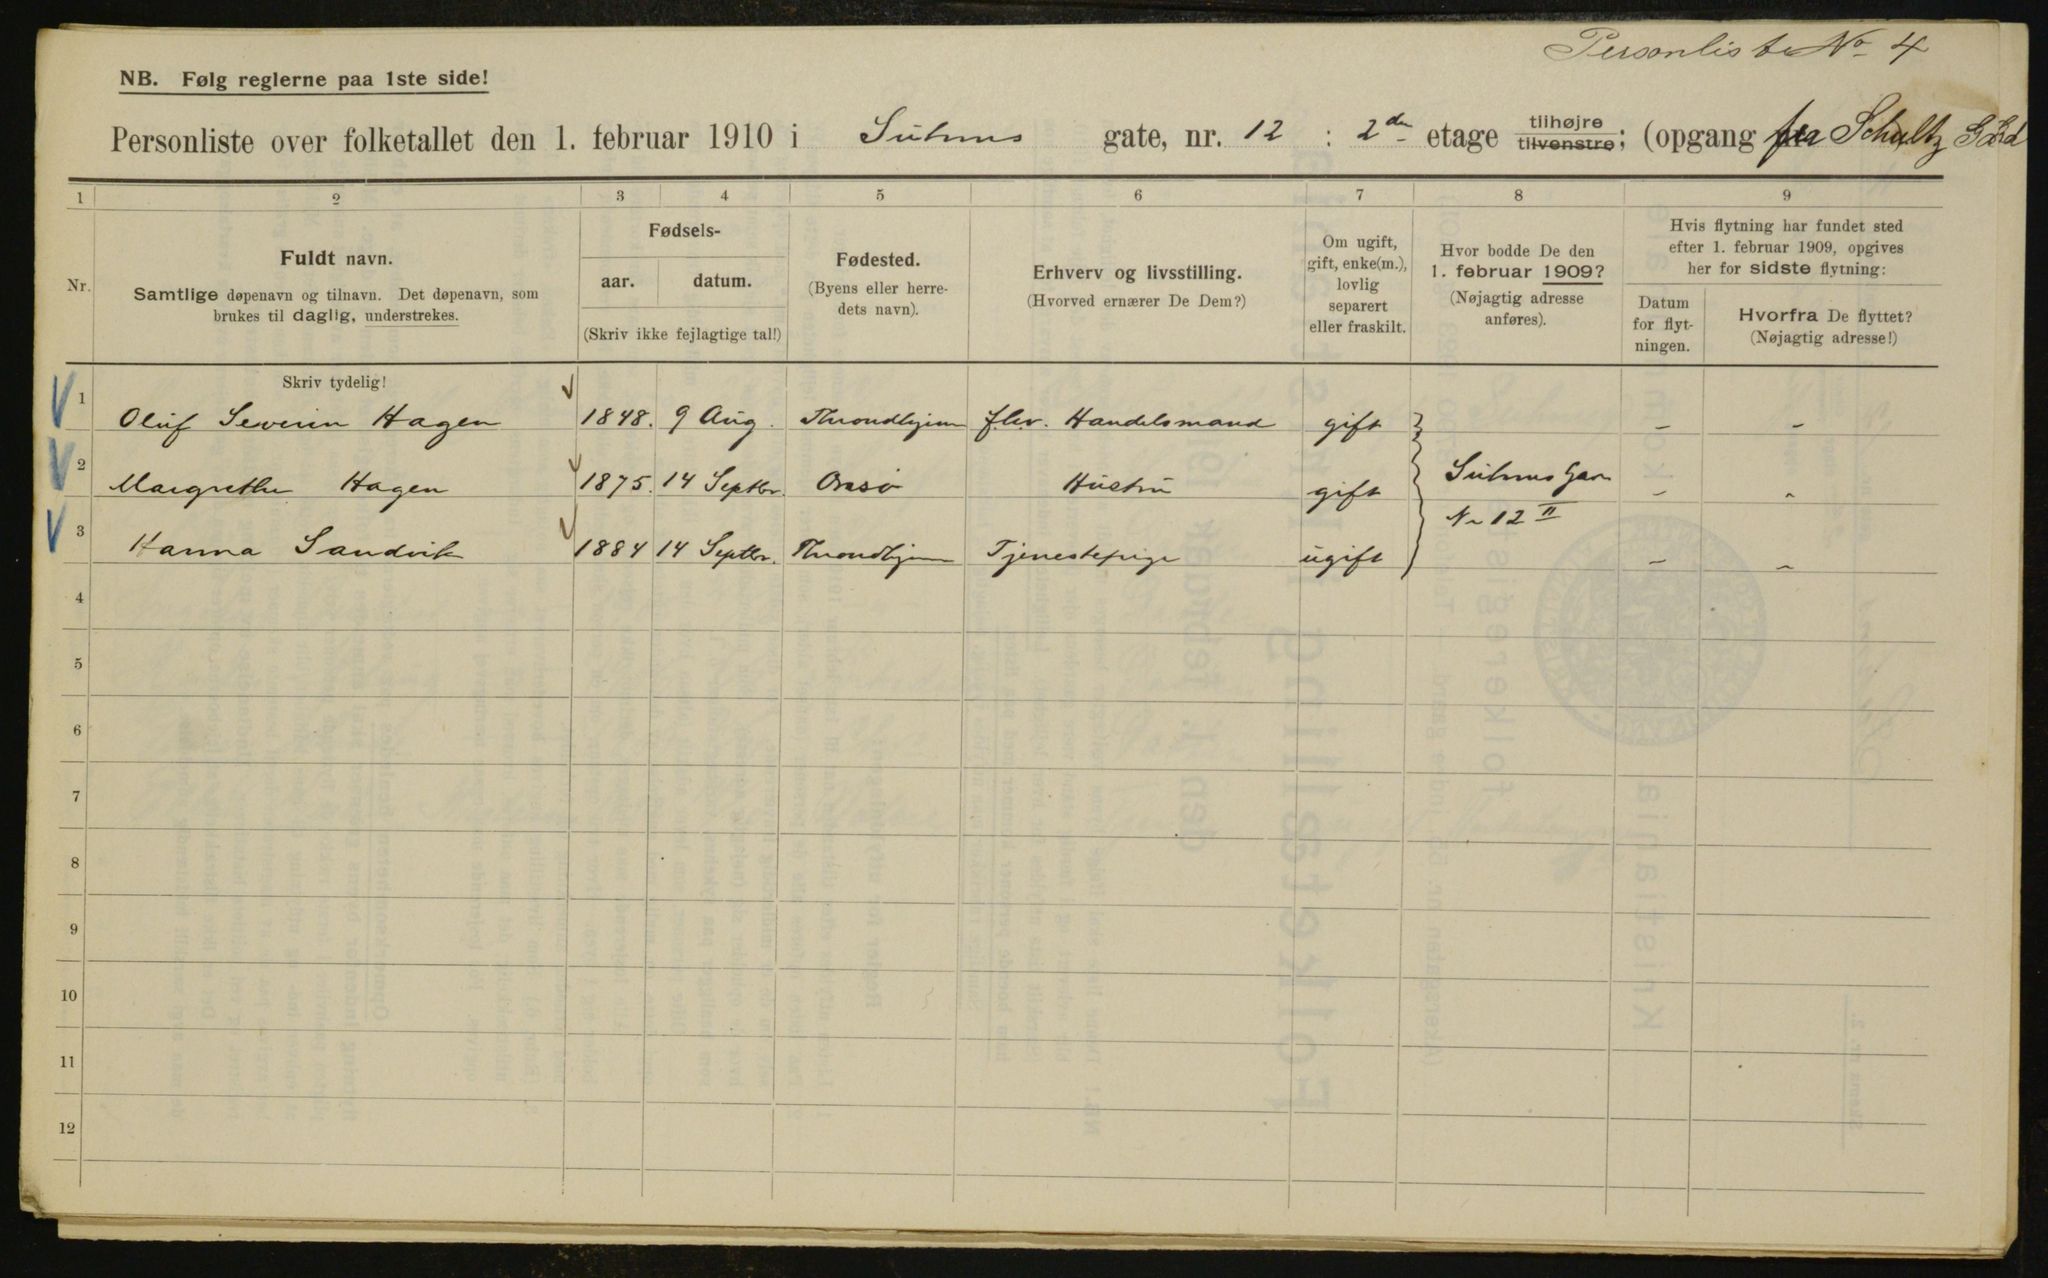 Personliste No 4
NB. Følg reglerne paa 1ste side!
Personliste over folketallet den 1. februar 1910 i Suhms gate, nr. 12 : 2den etage tilhøjre tilvenstre; (opgang fra Schultz Gd
1 2 3 4 5 6 7 8 9
Nr.
Fuldt navn.
Samtlige døpenavn og tilnavn. Det døpenavn, som
brukes til daglig, understrekes.
Fødsels-
aar. datum.
(Skriv ikke fejlagtige tal!)
Fødested.
(Byens eller herre-
dets navn).
Erhverv og livsstilling.
(Hvorved ernærer De Dem?)
Om ugift,
gift, enke(m.),
lovlig
separert
eller fraskilt.
Hvor bodde De den
1. februar 1909?
(Nøjagtig adresse
anføres).
Hvis flytning har fundet sted
efter 1. februar 1909, opgives
her for sidste flytning:
Datum
for flyt-
ningen.
Hvorfra De flyttet?
(Nøjagtig adresse!)
Skriv tydelig!
1 Oluf Severin Hagen 1848. 9 Aug. Throndhjem Handelsmand gift - -
2 Margrethe Hagen 1875. 14 Septbr. Hustru gift Suhms Gade - -
3 Hanna Sandvik 1884 14 Septbr. Throndhjem Tjenestepige ugift Nr 12 II - -
4
5
6
7
8
9
10
11
12